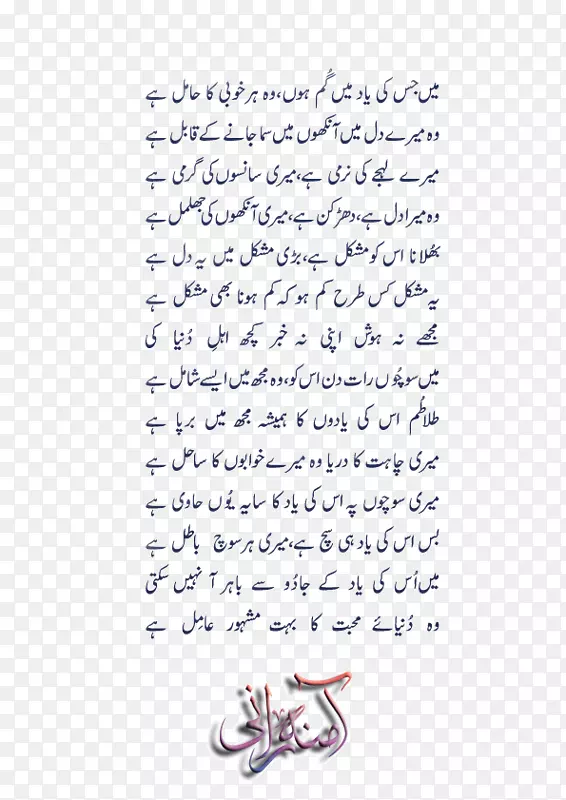 میں جس کی یاد میں گُم ہوں،وہ ہر خوبی کا حامل ہے
وہ میرے دل میں آنکھوں میں سما جانے کے قابل ہے
میرے لہجے کی نرمی ہے،میری سانسوں کی گرمی ہے
وہ میرا دل ہے،دھڑکن ہے،میری آنکھوں کی جھلمل ہے
بھُلانا اس کو مشکل ہے،بڑی مشکل میں یہ دل ہے
یہ مشکل کس طرح کم ہو کہ کم ہونا بھی مشکل ہے
مجھے نہ ہوش اپنی نہ خبر کچھ اہلِ دُنیا کی
میں سوچُوں رات دن اس کو،وہ مجھ میں ایسے شامل ہے
طلاطُم اس کی یادوں کا ہمیشہ مجھ میں برپا ہے
میری چاہت کا دریا وہ میرے خوابوں کا ساحل ہے
میری سوچوں پہ اس کی یاد کا سایہ یُوں حاوی ہے
بس اس کی یاد ہی سچ ہے،میری ہر سوچ باطل ہے
میں اُس کی یاد کے جادُو سے باہر آ نہیں سکتی
وہ دُنیائے محبت کا بہت مشہور عامِل ہے